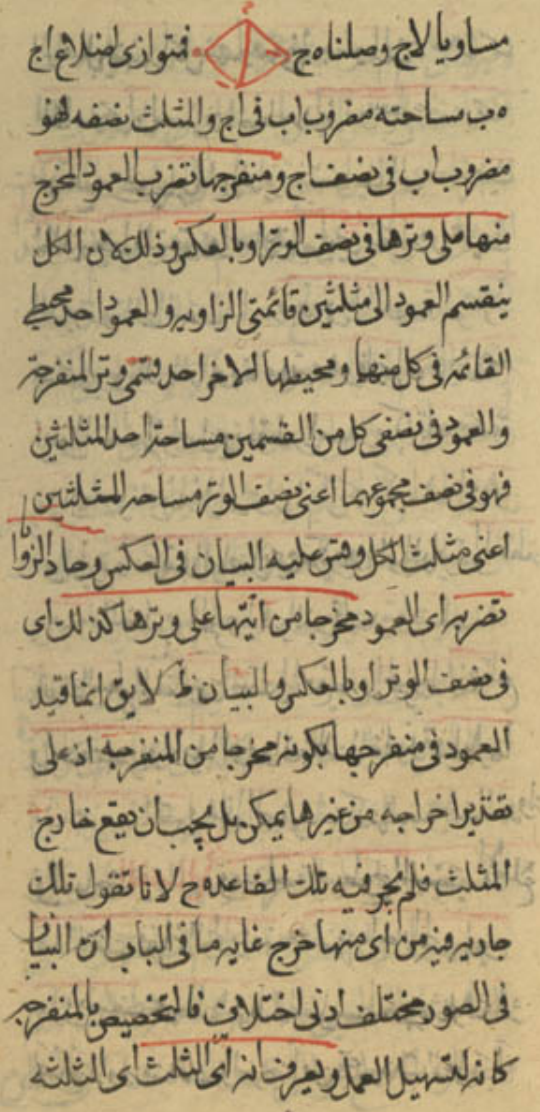 مساويا لاج وصلناه ج فمتوازى اضلاع اج
ه ب مساحته مضروب اب فى اج والمثلث نصفه فهو
مضروب اب فى نصف اج ومنفرجها تضرب العمود المخرج
منها على وترها فى نصف الوتر او بالعكس وذلك لان الكل
ينقسم العمود الى مثلثين قائمتى الزاويه والعمود احد محيطى
القائمه فى كل منهما ومحيطها الاخر احد قسمى وتر المنفرجة
والعمود فى نصفى كل من القسمين مساحة احد المثلثين
فهو فى نصف مجموعهما اعنى نصف الوتر مساحه المثلثين
اعنى مثلث الكل وقس عليه البيان فى العكس وحاد الزوايا
تضربه اى العمود مخرجا من ايتها على وترها كذلك اى
فى نصف الوتر او بالعكس والبيان ظ لا يق انما قيد
العمود فى منفرجها بكونه مخرجا من المنفرجه اذ على
تقدير اخراجه من غيرها يمكن بل يجب ان يقع خارج
المثلث فلم يجر فيه تلك القاعده ح لانا نقول تلك
جاريه فيه من اى منها خرج غايه ما فى الباب ان البيان
فى الصور مختلف ادنى اختلاف فالتخصيص بالمنفرجه
كانه لتسهيل العمل ويعرف انه اى الثلث اى الثلثه